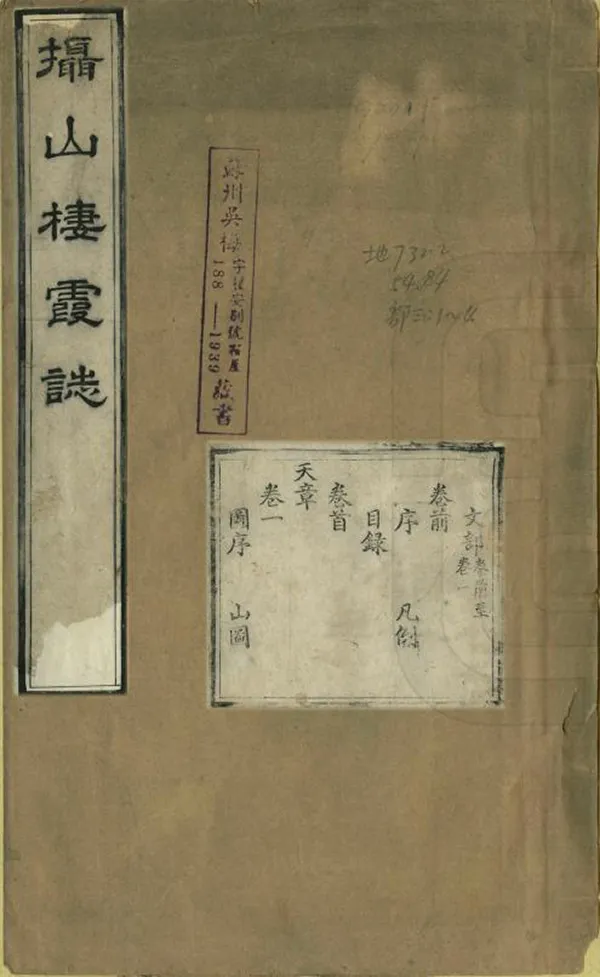 攝山棲霞誌
蘇州吳梅字瞿安別號霜厓
188 — 1939 藏書
地732.2
54.84
文部卷前至
卷一
卷前
序 凡例
目錄
卷首
天章
卷一
圖序 山圖